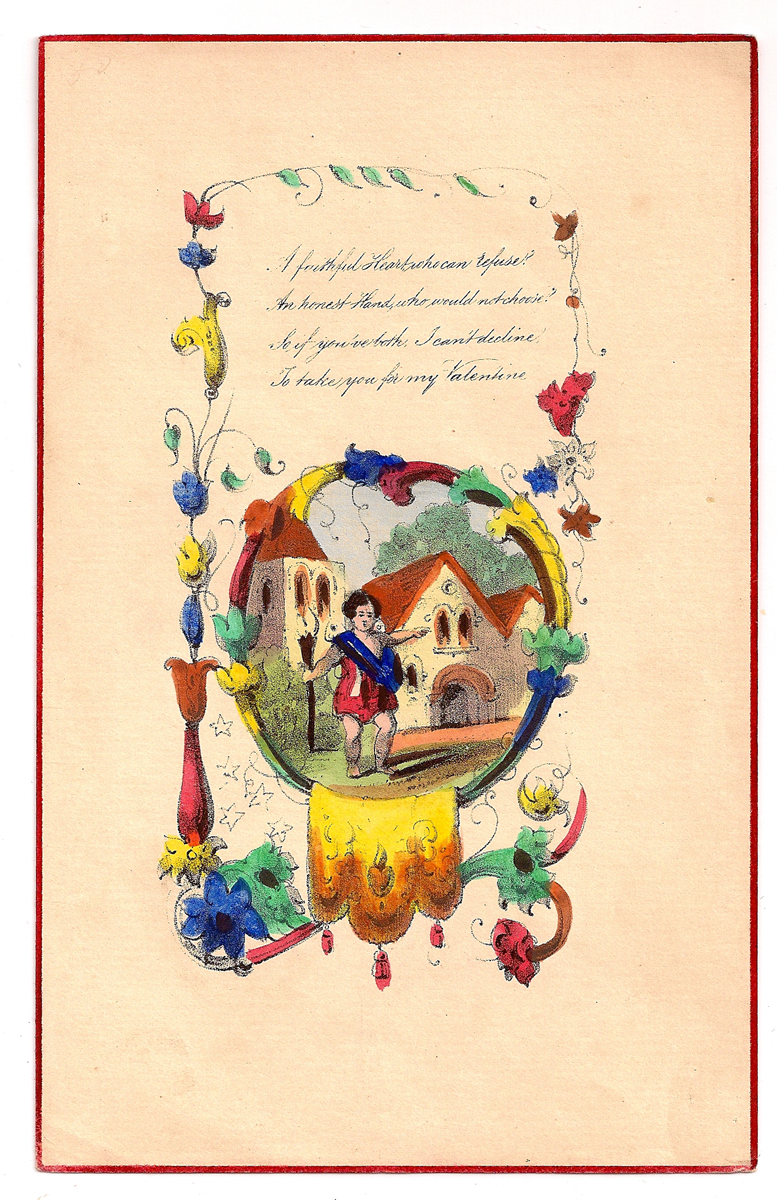 A faithful Heart, who can refuse?
An honest Hand, who would not choose?
So if you've both, I can't decline,
To take you for my Valentine